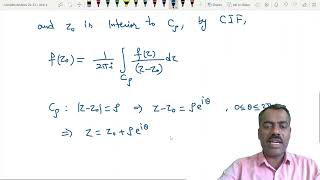 and z₀ is interior to Cρ, by CIF,
f(z₀) = 1/2πi ∫_Cρ f(z)/(z-z₀) dz
Cρ : |z-z₀| = ρ ⇒ z-z₀ = ρe^iθ, 0≤θ≤2π
⇒ z = z₀ + ρe^iθ